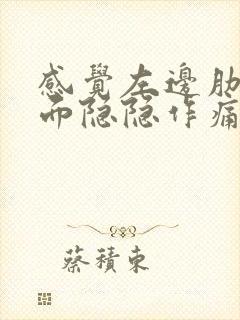 感覺左邊肋
而隐隐作痛
蔡積東